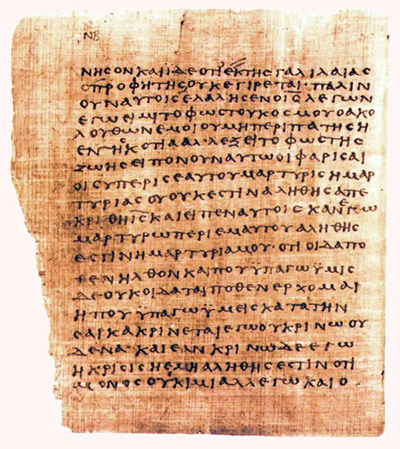 ΝΒ
ΝΗϹΟΝ ΚΑΙ ΪΔΕ ΟΤΙ ΕΚ ΤΗϹ ΓΑΛΙΛΑΙΑϹ
Ο ΠΡΟΦΗΤΗϹ ΟΥΚ ΕΓΙΡΕΤΑΙ· ΠΑΛΙΝ
ΟΥΝ ΑΥΤΟΙϹ ΕΛΑΛΗϹΕΝ Ο Ι̅Ϲ̅ ΛΕΓΩΝ
ΕΓΩ ΕΙΜΙ ΤΟ ΦΩϹ ΤΟΥ ΚΟϹΜΟΥ Ο ΑΚΟ
ΛΟΥΘΩΝ ΕΜΟΙ ΟΥ ΜΗ ΠΕΡΙΠΑΤΗϹΗ
ΕΝ ΤΗ ϹΚΟΤΙΑ ΑΛΛ ΕΞΕΙ ΤΟ ΦΩϹ ΤΗϹ
ΖΩΗϹ ΕΙΠΟΝ ΟΥΝ ΑΥΤΩ ΟΙ ΦΑΡΙϹΑΙ
ΟΙ ϹΥ ΠΕΡΙ ϹΕΑΥΤΟΥ ΜΑΡΤΥΡΙϹ Η ΜΑΡ
ΤΥΡΙΑ ϹΟΥ ΟΥΚ ΕϹΤΙΝ ΑΛΗΘΗϹ ΑΠΕ
ΚΡΙΘΗ Ι̅Ϲ̅ ΚΑΙ ΕΙΠΕΝ ΑΥΤΟΙϹ ΚΑΝ ΕΓΩ
ΜΑΡΤΥΡΩ ΠΕΡΙ ΕΜΑΥΤΟΥ ΑΛΗΘΗϹ
ΕϹΤΙΝ Η ΜΑΡΤΥΡΙΑ ΜΟΥ· ΟΤΙ ΟΙΔΑ ΠΟ
ΘΕΝ ΗΛΘΟΝ ΚΑΙ ΠΟΥ ΫΠΑΓΩ ΫΜΙϹ
ΔΕ ΟΥΚ ΟΙΔΑΤΑΙ ΠΟΘΕΝ ΕΡΧΟΜΑΙ
Η ΠΟΥ ΫΠΑΓΩ ΫΜΕΙϹ ΚΑΤΑ ΤΗΝ
ϹΑΡΚΑ ΚΡΙΝΕΤΑΙ ΕΓΩ ΟΥ ΚΡΙΝΩ ΟΥ
ΔΕΝΑ· ΚΑΙ ΕΑΝ ΚΡΙΝΩ ΔΕ ΕΓΩ
Η ΚΡΙϹΙϹ Η ΕΜΗ ΑΛΗΘΗϹ ΕϹΤΙΝ ΟΤΙ
ΜΟΝΟϹ ΟΥΚ ΙΜΙ ΑΛΛ ΕΓΩ ΚΑΙ Ο